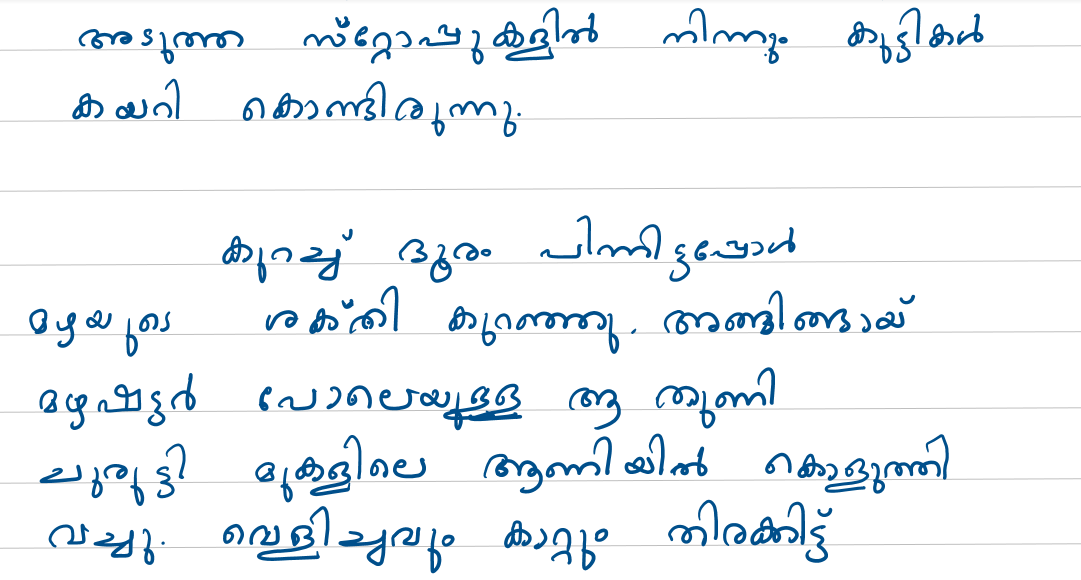 അടുത്ത സ്റ്റോപ്പുകളിൽ നിന്നും കുട്ടികൾ
കയറി കൊണ്ടിരുന്നു.
കുറച്ച് ദൂരം പിന്നിട്ടപ്പോൾ
മഴയുടെ ശക്തി കുറഞ്ഞു. അങ്ങിങ്ങായ്
മഴഷട്ടർ പോലെയുള്ള ആ തുണി
ചുരുട്ടി മുകളിലെ ആണിയിൽ കൊളുത്തി
വച്ചു. വെളിച്ചവും കാറ്റും തിരക്കിട്ട്